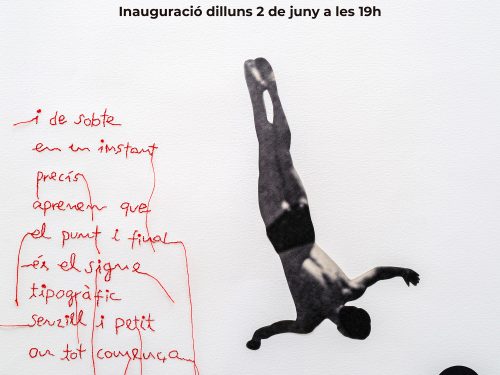 Inauguració dilluns 2 de juny a les 19h
i de sobte
en un instant
precís
aprenem que
el punt i final
és el signe
tipogràfic
senzill i petit
on tot comença